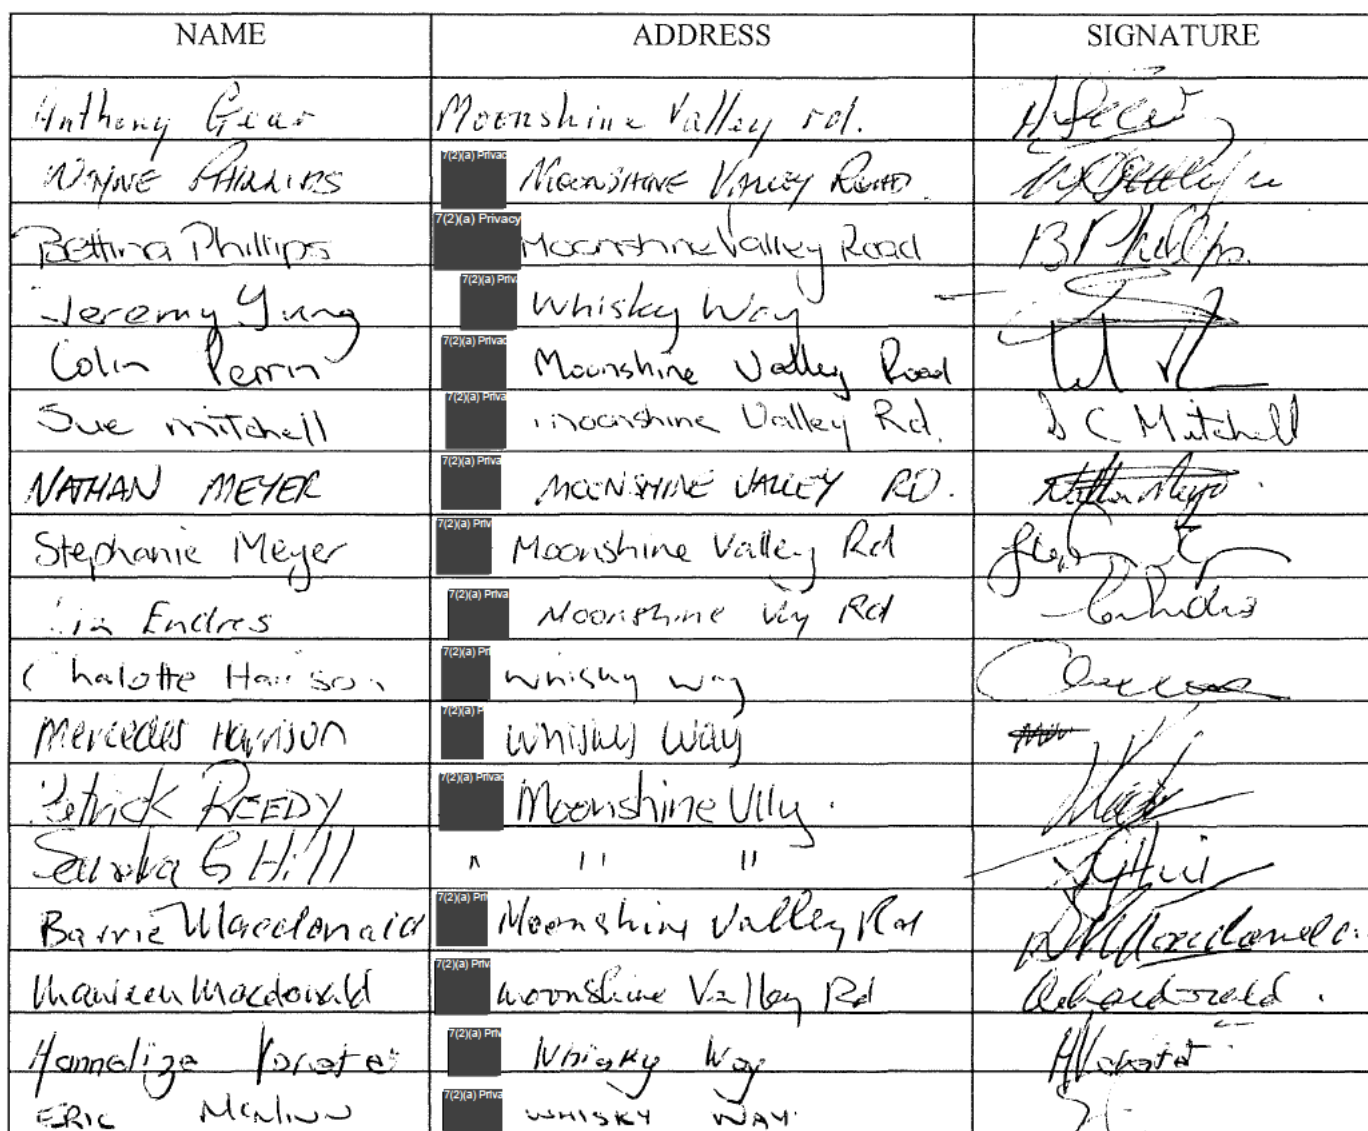 NAME ADDRESS SIGNATURE
Anthony Gear Moonshine Valley rd.
WAYNE PHILLIPS 7(2)(a) Privac MOONSHINE VALLEY ROAD
Bettina Phillips 7(2)(a) Privacy Moonshine Valley Road B Phillips.
Jeremy Yung 7(2)(a) Priv Whisky Way
Colin Perrin 7(2)(a) Privac Moonshine Valley Road
Sue mitchell 7(2)(a) Privac moonshine Valley Rd. S C Mitchell
NATHAN MEYER 7(2)(a) Priva MOONSHINE VALLEY RD.
Stephanie Meyer 7(2)(a) Priv Moonshine Valley Rd
Endres 7(2)(a) Priva Moonshine Vly Rd
Chalotte Harrison 7(2)(a) Pri whisky way
Mercedes Harrison 7(2)(a) P Whisky Way
Patrick REEDY 7(2)(a) Privac Moonshine Vlly.
G Hill " " "
Barrie Macdonald 7(2)(a) Pri Moonshine Valley Rd
Maureen Macdonald 7(2)(a) Priv moonshine Valley Rd
Hannelize 7(2)(a) Priva Whisky Way
ERIC 7(2)(a) Priva WHISKY WAY